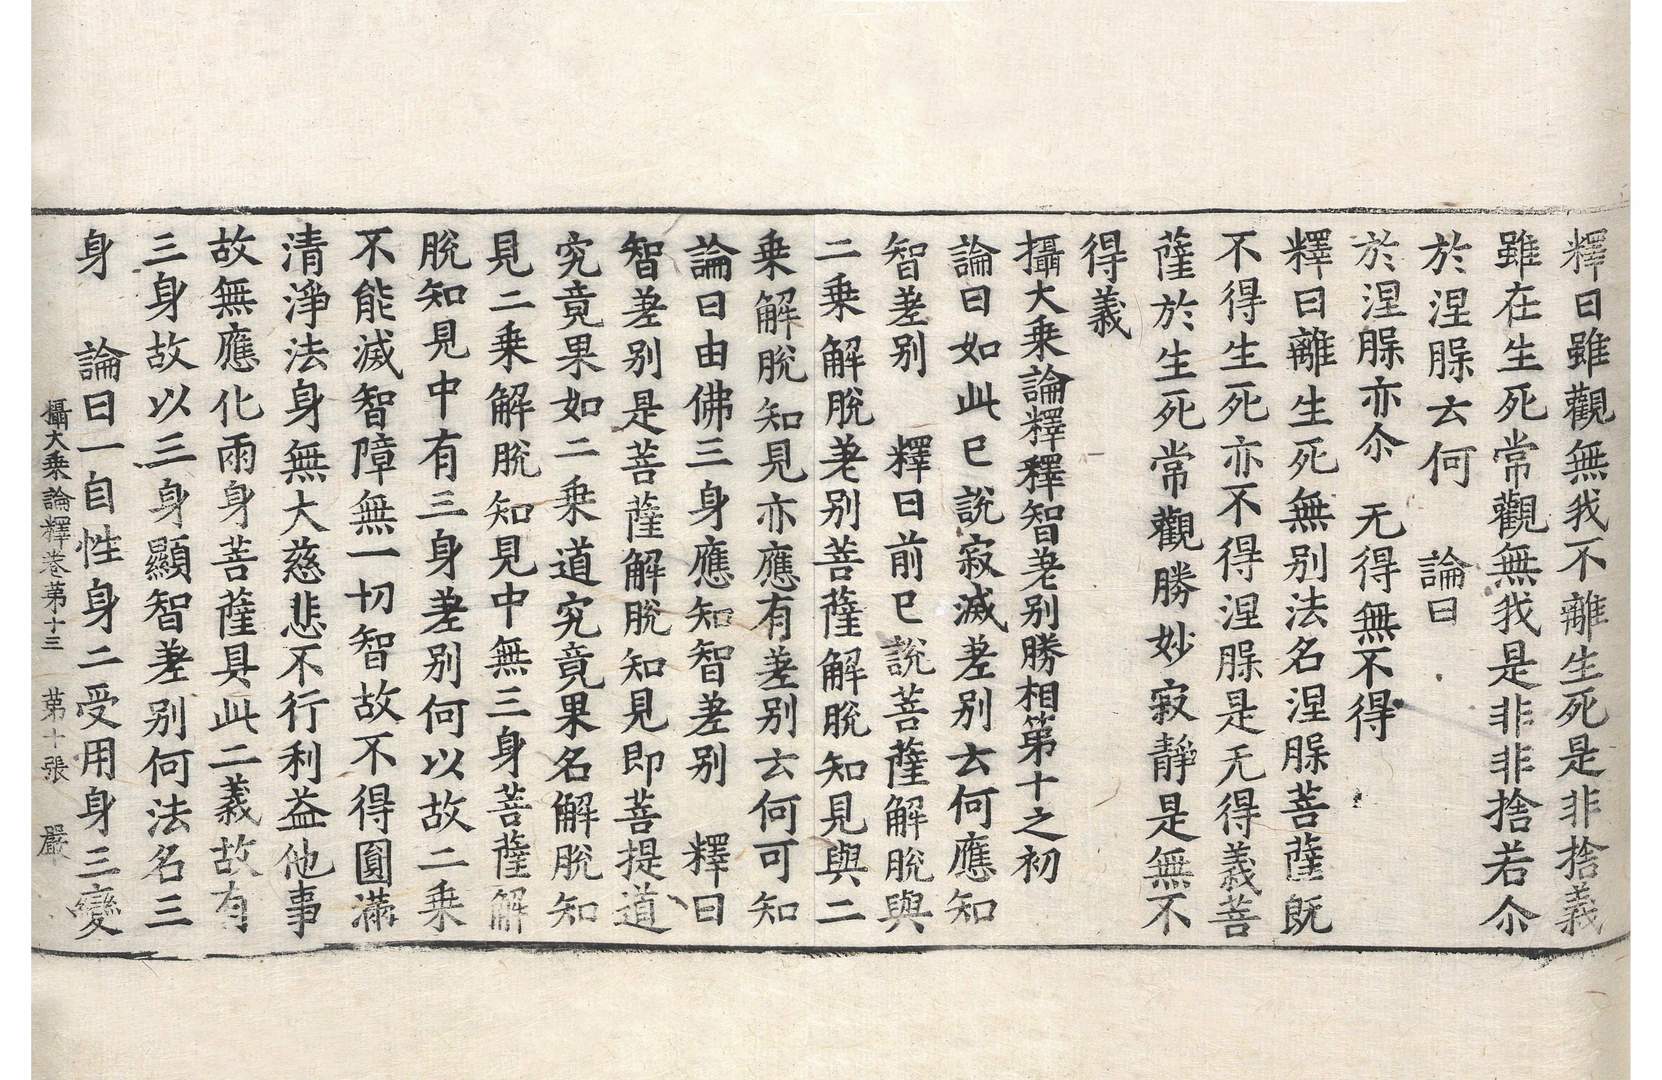 釋曰雖觀無我不離生死是非捨義
雖在生死常觀無我是非非捨若尒
於涅槃云何　論曰
於涅槃亦尒　无得無不得
釋曰離生死無别法名涅槃菩薩旣
不得生死亦不得涅槃是无得義菩
薩於生死常觀勝妙寂靜是無不
得義
攝大乗論釋釋智差别勝相第十之初
論曰如此已說寂滅差别云何應知
智差别　釋曰前已說菩薩解脫與
二乗解脫差别菩薩解脫知見與二
乗解脫知見亦應有差别云何可知
論曰由佛三身應知智差别　釋曰
智差别是菩薩解脫知見即菩提道
究竟果如二乗道究竟果名解脫知
見二乗解脫知見中無三身菩薩解
脫知見中有三身差别何以故二乗
不能滅智障無一切智故不得圓滿
清淨法身無大慈悲不行利益他事
故無應化兩身菩薩具此二義故有
三身故以三身顯智差别何法名三
身　論曰一自性身二受用身三變
攝大乗論釋卷第十三　第十張　嚴